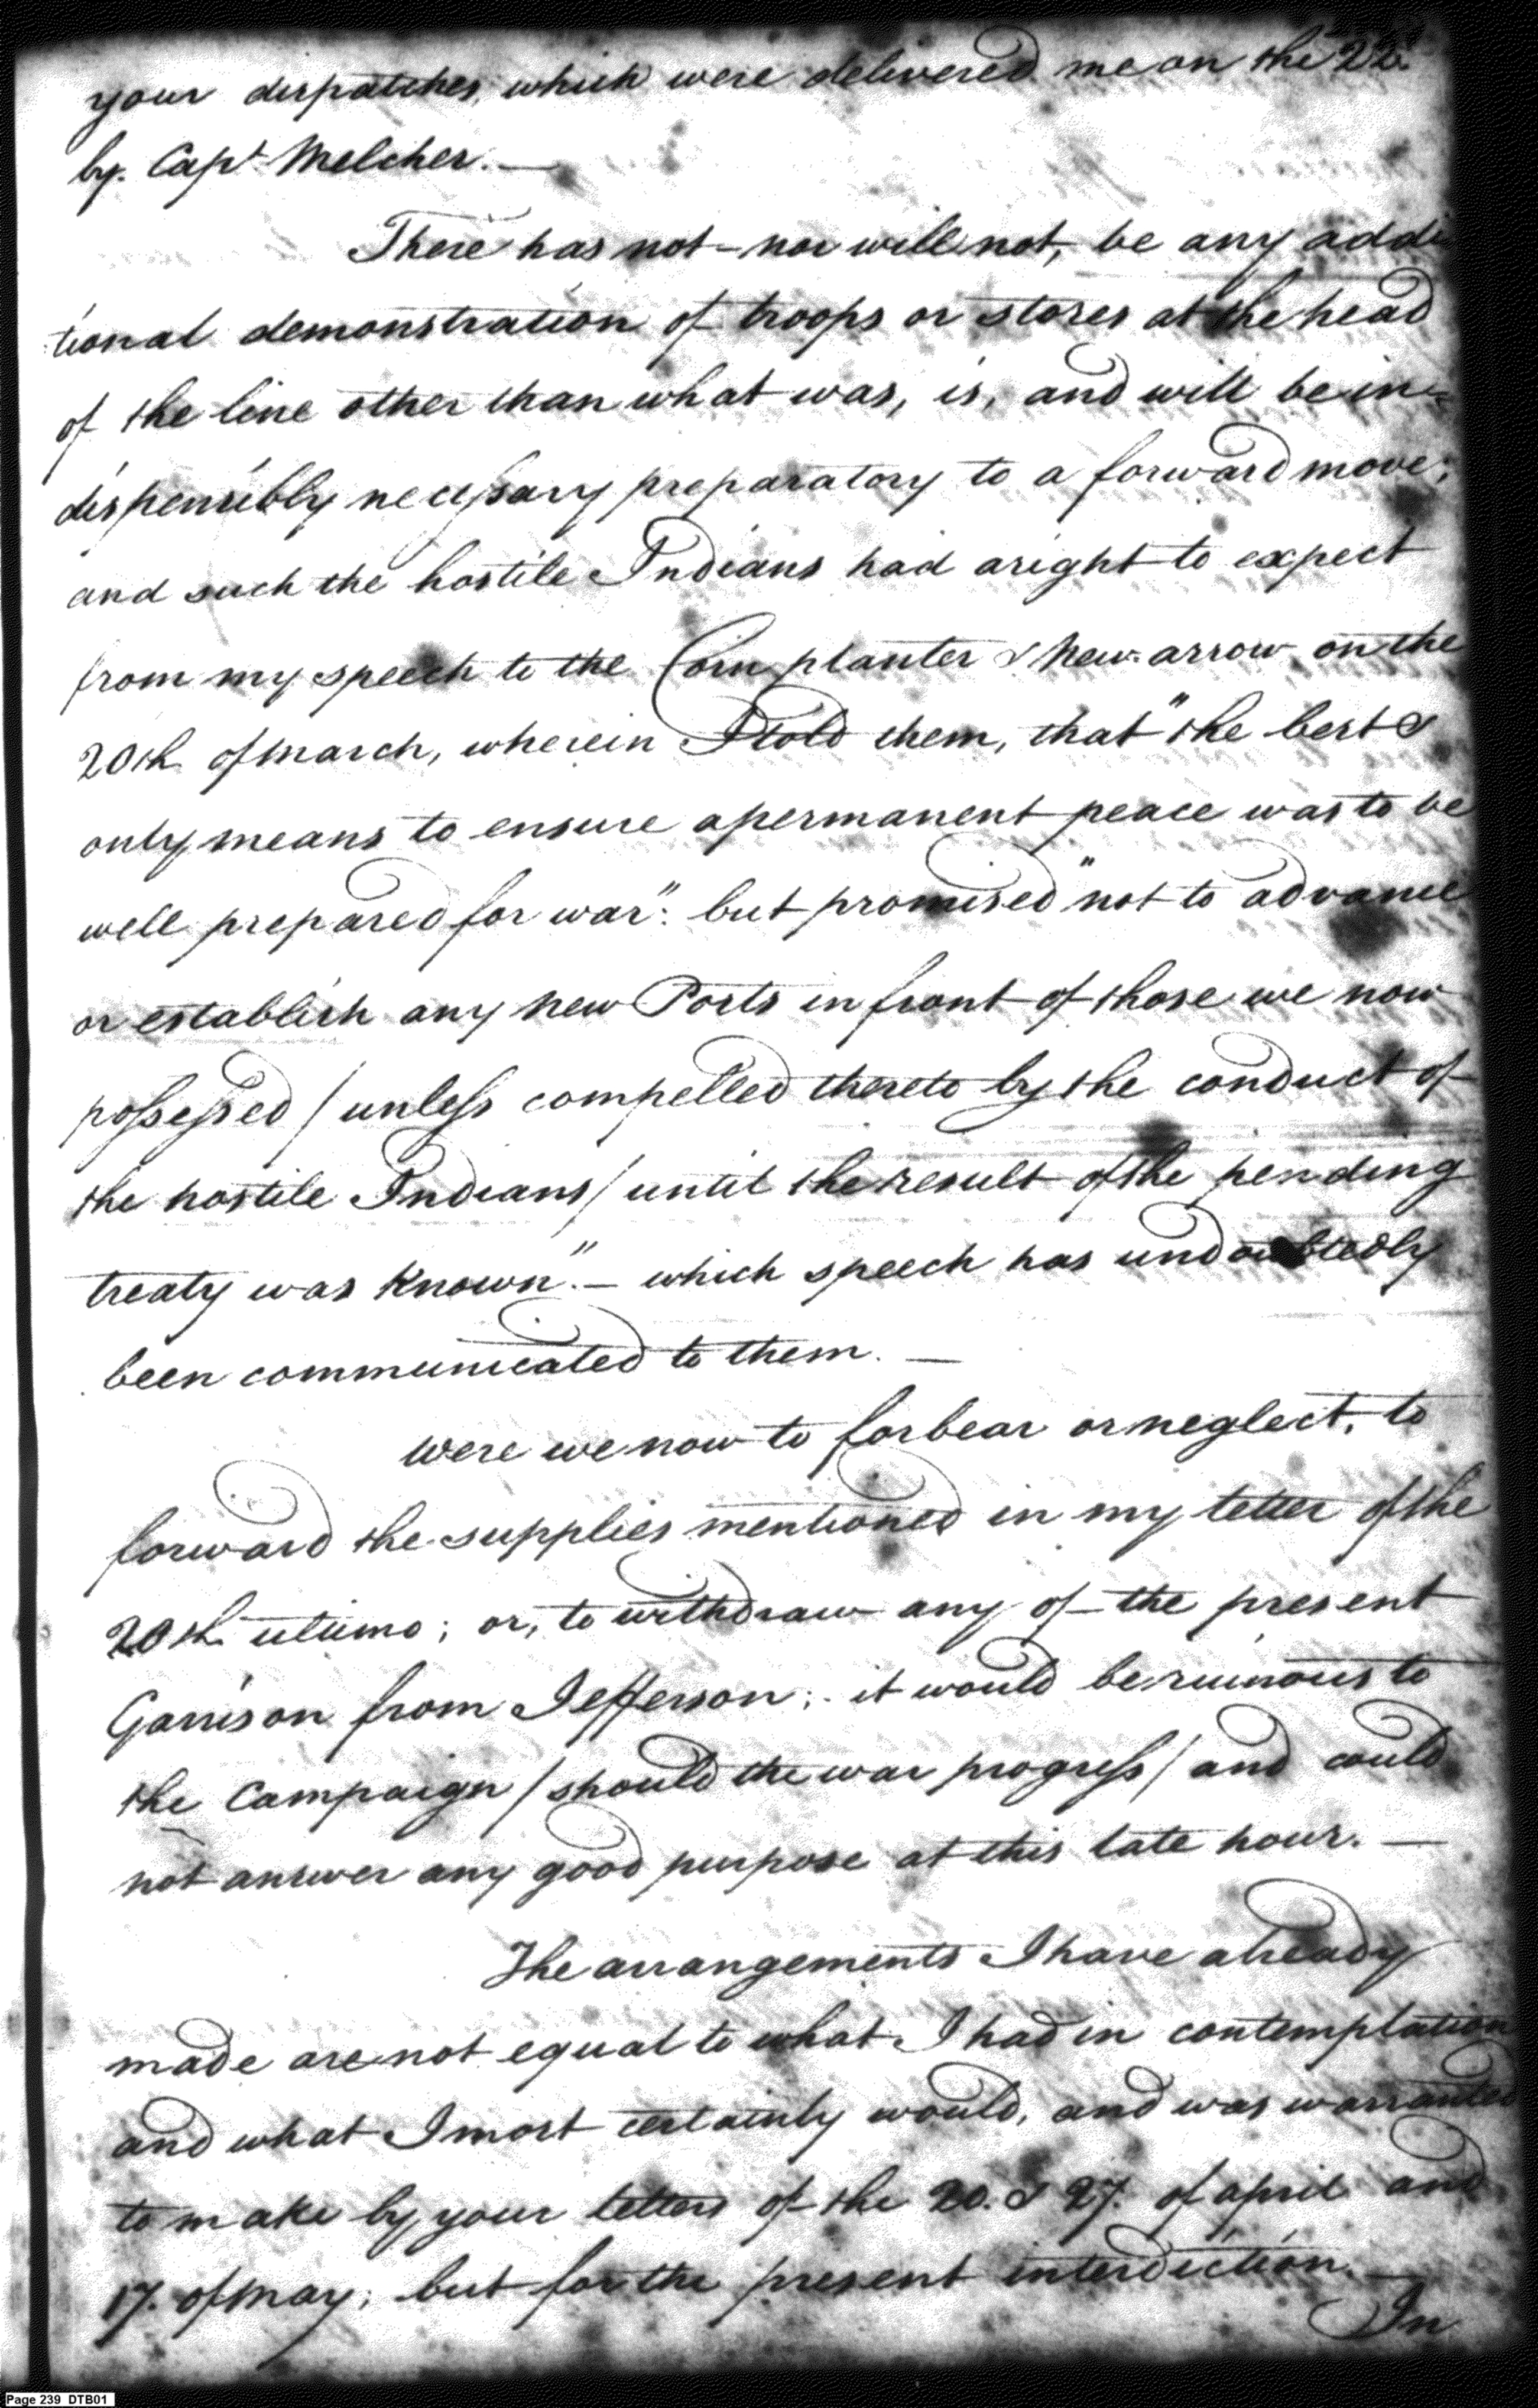 your dispatches, which were delivered me on the 22d.
by. Capt. Melcher. —
There has not – nor will not, be any addi
tional demonstration of troops or stores at the head
of the line other than what was, is, and will be in=
dispensibly necessary preparatory to a forward move;
and such the hostile Indians had a right to expect
from my speech to the Corn planter & New arrow, on the
20th of March, wherein I told them, that "the best &
only means to ensure a permanent peace was to be
well prepared for war": but promised "not to advance
or establish any new Posts in front of those we now
possessed / unless compelled thereto by the conduct of
the hostile Indians / until the result of the pending
treaty was known". – which speech has undoubtedly
been communicated to them. —
Were we now to forbear or neglect, to
forward the supplies mentioned in my letter of the
20th ultimo; or, to withdraw any of the present
Garrison from Jefferson; it would be ruinous to
the Campaign / should the war progress / and could
not answer any good purpose at this late hour. —
The arrangements I have already
made are not equal to what I had in contemplation
and what I most certainly would, and was warranted
to make by your letters of the 20. & 27. of april and
17. of May; but for the present interdiction. —
In
Page 239 DTB01